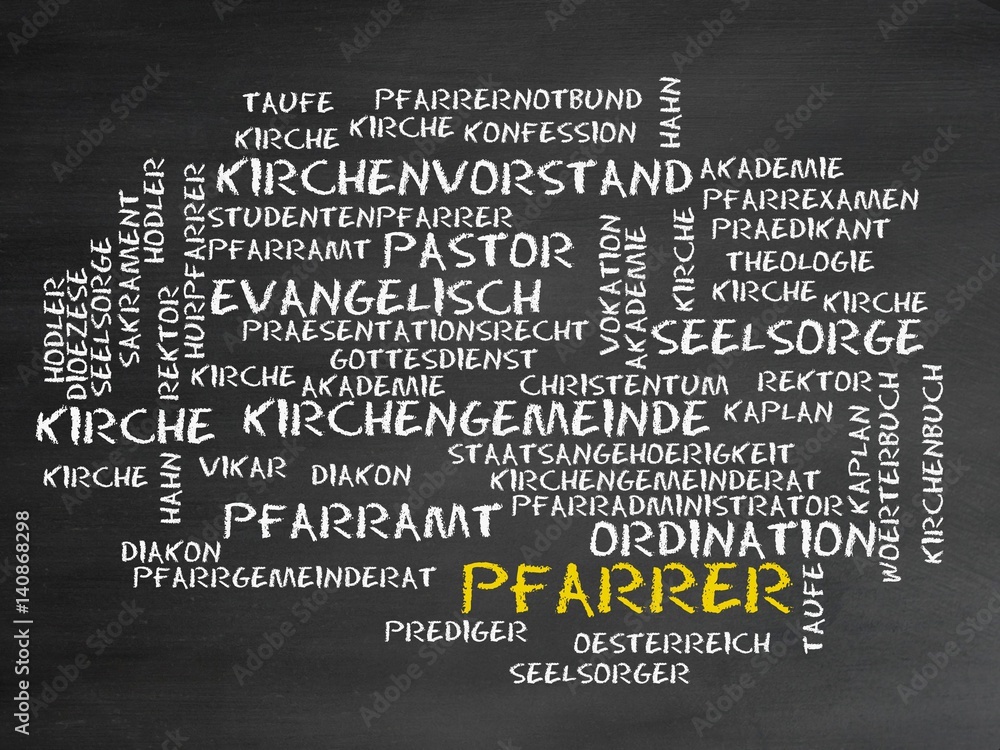 TAUFE
PFARRERNOTBUND
HAHN
KIRCHE
KIRCHE
KONFESSION
KIRCHENVORSTAND
AKADEMIE
HODLER
HURPFARRER
PFARREXAMEN
STUDENTENPFARRER
PRAEDIKANT
PFARRAMT
PASTOR
VOKATION
AKADEMIE
KIRCHE
THEOLOGIE
SAKRAMENT
SEELSORGE
DIOEZESE
HODLER
EVANGELISCH
KIRCHE
KIRCHE
REKTOR
PRAESENTATIONSRECHT
SEELSORGE
GOTTESDIENST
KIRCHE
AKADEMIE
CHRISTENTUM
REKTOR
KIRCHE
KIRCHENGEMEINDE
KAPLAN
KAPLAN
WOERTERBUCH
KIRCHENBUCH
STAATSANGEHOERIGKEIT
KIRCHE
HAHN
VIKAR
DIAKON
KIRCHENGEMEINDERAT
PFARRADMINISTRATOR
PFARRAMT
ORDINATION
DIAKON
PFARRGEMEINDERAT
PFARRER
TAUFE
PREDIGER
OESTERREICH
SEELSORGER
Adobe Stock | #140868298
Adobe Stock